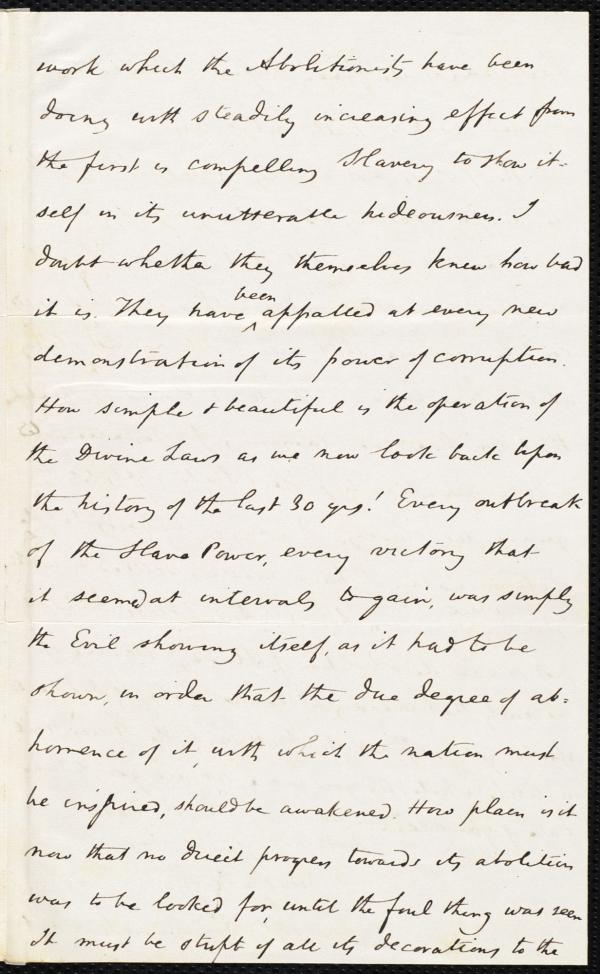 work which the Abolitionists have been
doing with steadily increasing effect from
the first is compelling Slavery to show it-
self in its unutterable hideousness. I
doubt whether they themselves knew how bad
it is. They have been appalled at every new
demonstration of its power of corruption.
How simple & beautiful is the operation of
the Divine Laws as we now look back upon
the history of the last 30 yrs! Every outbreak
of the Slave Power, every victory that
it seemed at intervals to gain, was simply
the Evil showing itself, as it had to be
shown, in order that the due degree of ab-
horrence of it, with which the nation must
be inspired, should be awakened. How plain is it
now that no direct progress towards its abolition
was to be looked for, until the foul thing was seen
It must be stript of all its decorations to the